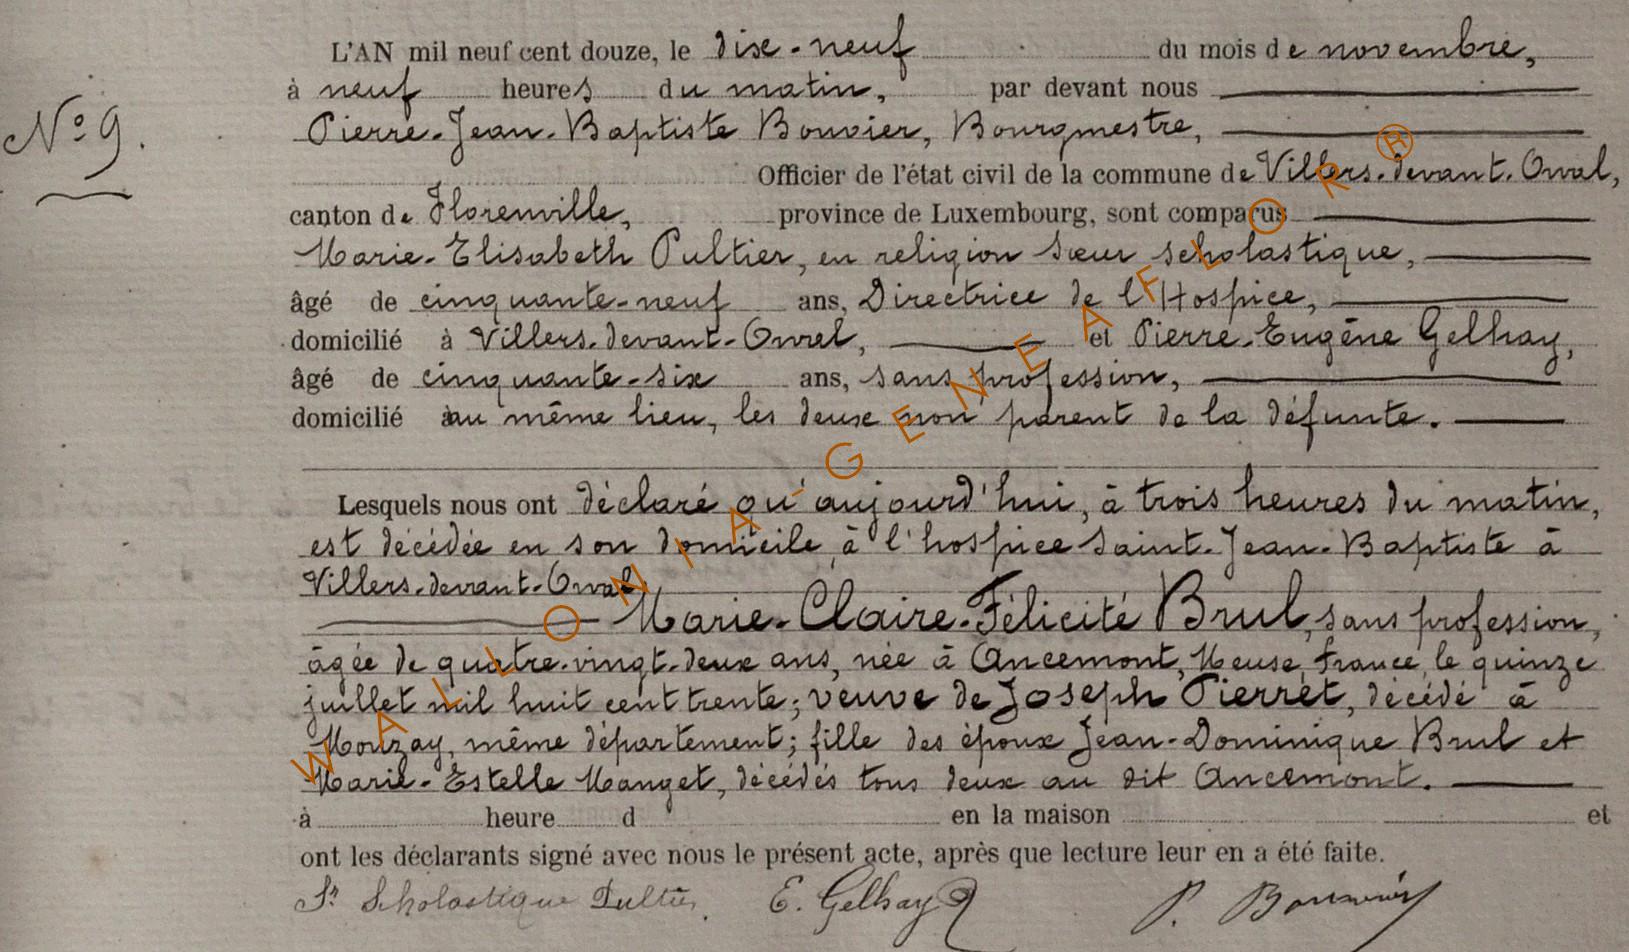 L'AN mil neuf cent douze, le dix-neuf du mois de novembre,
à neuf heures du matin, par devant nous
N° 9.
Pierre-Jean-Baptiste Bouvier, Bourgmestre,
Officier de l'état civil de la commune de Villers-devant-Orval,
canton de Florenville, province de Luxembourg, sont comparus
Marie-Elisabeth Pultier, en religion sœur scholastique,
âgé de cinquante-neuf ans, Directrice de l'Hospice,
domicilié à Villers-devant-Orval, et Pierre-Eugène Gelhay,
âgé de cinquante-six ans, sans profession,
domicilié au même lieu, les deux non parent de la défunte.
Lesquels nous ont déclaré qu'aujourd'hui, à trois heures du matin,
est décédée en son domicile à l'hospice Saint-Jean-Baptiste à
Villers-devant-Orval,
Marie-Claire-Félicité Brul, sans profession,
âgée de quatre-vingt-deux ans, née à Ancemont, Meuse, France, le quinze
juillet mil huit cent trente; veuve de Joseph Pierret, décédé à
Mouzay, même département; fille des époux Jean-Dominique Brul et
Marie-Estelle Manget, décédés tous deux au dit Ancemont.
à heure d en la maison et
ont les déclarants signé avec nous le présent acte, après que lecture leur en a été faite.
Sr Scholastique Pultier. E. Gelhay P. Bouvier
WALLONIA-GENEAFLOR®